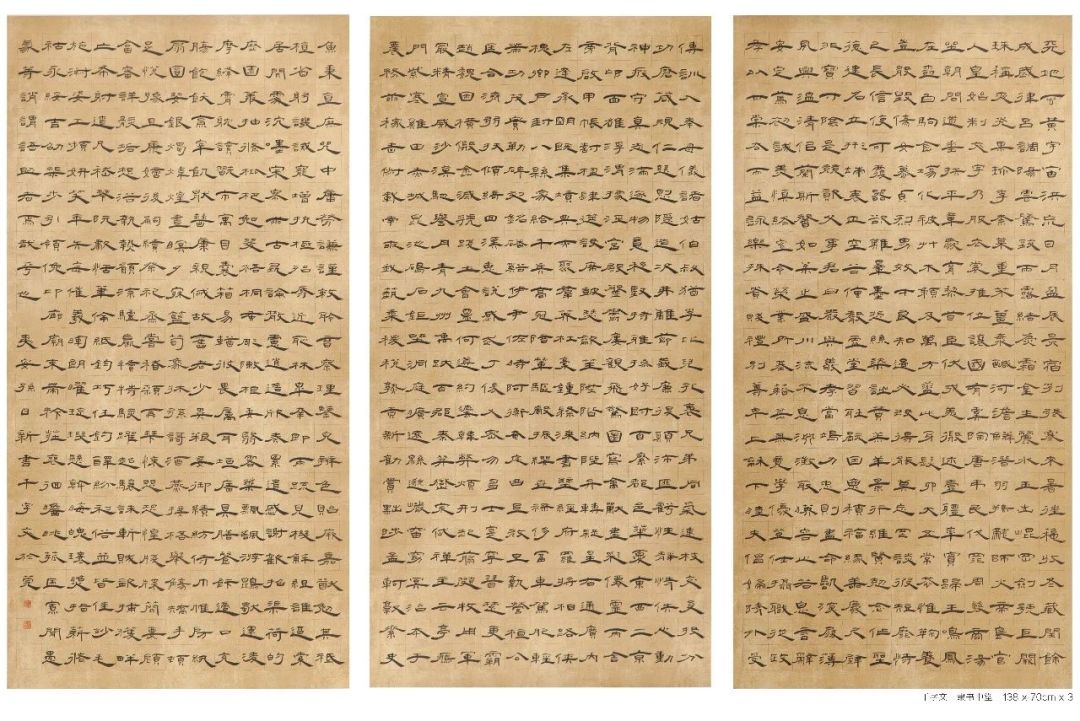 天地玄黃宇宙洪荒日月盈昃辰宿列張寒來暑往秋收冬藏閏餘
成歲律呂調陽雲騰致雨露結為霜金生麗水玉出崑岡劍號巨闕
珠稱夜光果珍李柰菜重芥薑海鹹河淡鱗潛羽翔龍師火帝鳥官
人皇始制文字乃服衣裳推位讓國有虞陶唐弔民伐罪周發殷湯
坐朝問道垂拱平章愛育黎首臣伏戎羌遐邇壹體率賓歸王鳴鳳
在白駒食場化被草木賴及萬方蓋此身髮四大五常恭惟鞠養
豈敢毀傷女慕貞潔男效才良知過必改得能莫忘罔談彼短靡恃
己長信使可覆器欲難量墨悲絲染詩讚羔羊景行維賢克念作聖
德建名立形端表正空谷傳聲虛堂習聽禍因惡積福緣善慶尺璧
非寶寸陰是競資父事君曰嚴與敬孝當竭力忠則盡命臨深履薄
夙興溫凊似蘭斯馨如松之盛川流不息淵澄取映容止若思言辭
安定篤初誠美慎終宜令榮業所基籍甚無竟學優登仕攝職從政
存以甘棠去而益詠樂殊貴賤禮別尊卑上和下睦夫唱婦隨外受
傅訓入奉母儀諸姑伯叔猶子比兒孔懷兄弟同氣連枝交友投分
切磨箴規仁慈隱惻造次弗離節義廉退顛沛匪虧性靜情逸心動
神疲守真志滿逐物意移堅持雅操好爵自縻都邑華夏東西二京
背邙面洛浮渭據涇宮殿盤鬱樓觀飛驚圖寫禽獸畫彩仙靈丙舍
傍啟甲帳對楹肆筵設席鼓瑟吹笙升階納陛弁轉疑星右通廣內
左達承明既集墳典亦聚群英杜稿鍾隸漆書壁經府羅將相路俠
槐卿戶封八縣家給千兵高冠陪輦驅轂振纓世祿侈富車駕肥輕
策功茂實勒碑刻銘磻溪伊尹佐時阿衡奄宅曲阜微旦孰營桓公
匡合濟弱扶傾綺迴漢惠說感武丁俊乂密勿多士寔寧晉楚更霸
趙魏困橫假途滅虢踐土會盟何遵約法韓弊煩刑起翦頗牧用軍
最精宣威沙漠馳譽丹青九州禹跡百郡秦并嶽宗泰岱禪主云亭雁
門紫塞雞田赤城昆池碣石鉅野洞庭曠遠綿邈巖岫杳冥治本於
農務茲稼穡俶載南畝我藝黍稷稅熟貢新勸賞黜陟孟軻敦素史
魚秉直庶幾中庸勞謙謹敕聆音察理鑒貌辨色貽厥嘉猷勉其祗
植省躬譏誡寵增抗極殆辱近恥林皋幸即兩疏見機解組誰逼索
居閒處沈默寂寥求古尋論散慮逍遙欣奏累遣慼謝歡招渠荷的
歷園莽抽條枇杷晚翠梧桐蚤凋陳根委翳落葉飄颻遊鵾獨運凌
摩絳霄耽讀翫市寓目囊箱易輶攸畏屬耳垣牆具膳餐飯適口充
腸飽飫烹宰飢厭糟糠親戚故舊老少異糧妾御績紡侍巾帷房紈
扇圓潔銀燭煒煌晝眠夕寐藍筍象床弦歌酒宴接杯舉觴矯手頓
足悅豫且康嫡後嗣續祭祀烝嘗稽顙再拜悚懼恐惶牋牒簡要顧
答審詳骸垢想浴執熱願涼驢騾犢特駭躍超驤誅斬賊盜捕獲叛
亡布射僚丸嵇琴阮嘯恬筆倫紙鈞巧任釣釋紛利俗並皆佳妙毛
施淑姿工顰妍笑年矢每催曦暉朗曜璇璣懸斡晦魄環照指薪修
祜永綏吉劭矩步引領俯仰廊廟束帶矜莊徘徊瞻眺孤陋寡聞愚
蒙等誚謂語助者焉哉乎也 夷安孫日新書千字文於
千字文 隶书中堂 138 x 70cm x 3